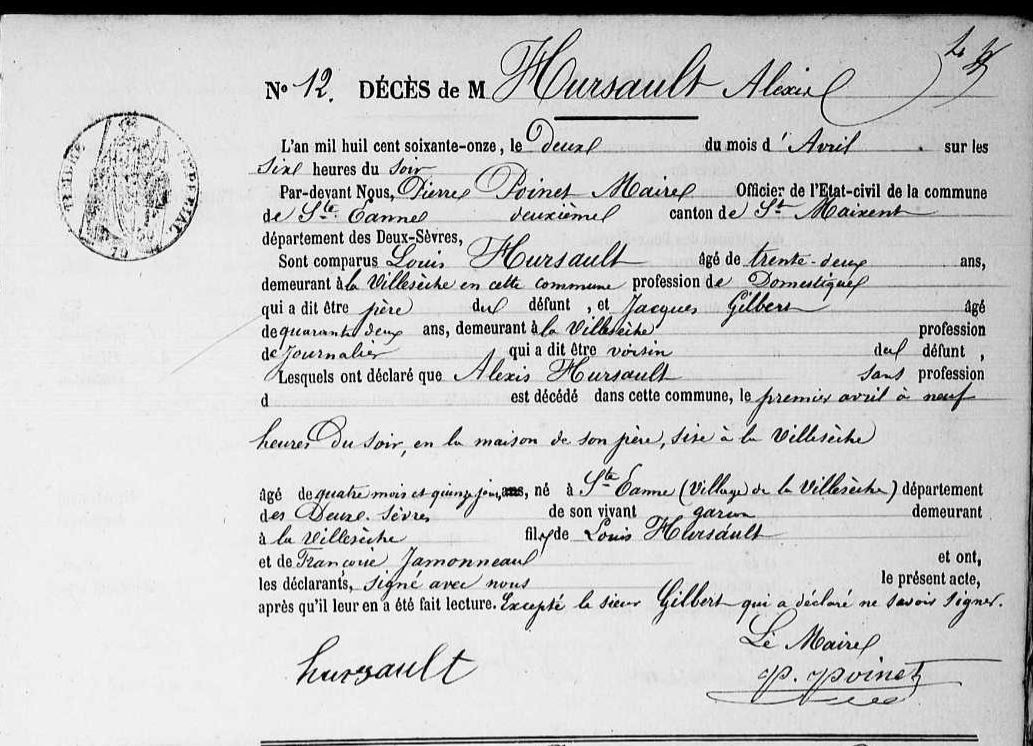 No 12. DÉCÈS de M Hursault Alexis
L'an mil huil cent soixante-onze, le Deux du mois d' Avril sur les
six heures du soir
Par-devant Nous, Pierre Poinet Maire Officier de l'Etat-civil de la commune
de Ste Eanne deuxième canton de St Maixent
département des Deux-Sèvres,
Sont comparus Louis Hursault âgé de trente-deux ans,
demeurant à la Villesèche en cette commune profession de Domestique
qui a dit être père du défunt, et Jacques Gilbert âgé
de quarante deux ans, demeurant à la Villesèche profession
de Journalier qui a dit être voisin du défunt,
Lesquels ont déclaré que Alexis Hursault sans profession
d est décédé dans cette commune, le premier avril à neuf
heures Du soir, en la maison de son père, sise à la Villesèche
âgé de quatre mois et quinze jours, ans, né à Ste Eanne (Village de la Villesèche) département
des Deux-Sèvres de son vivant garçon demeurant
à la Villesèche fils de Louis Hursault
et de Françoise Jamonneau et ont,
les déclarants, signé avec nous le présent acte,
après qu'il leur en a été fait lecture. Excepté le sieur Gilbert qui a déclaré ne savoir signer.
Le Maire
hursault P. Poinet